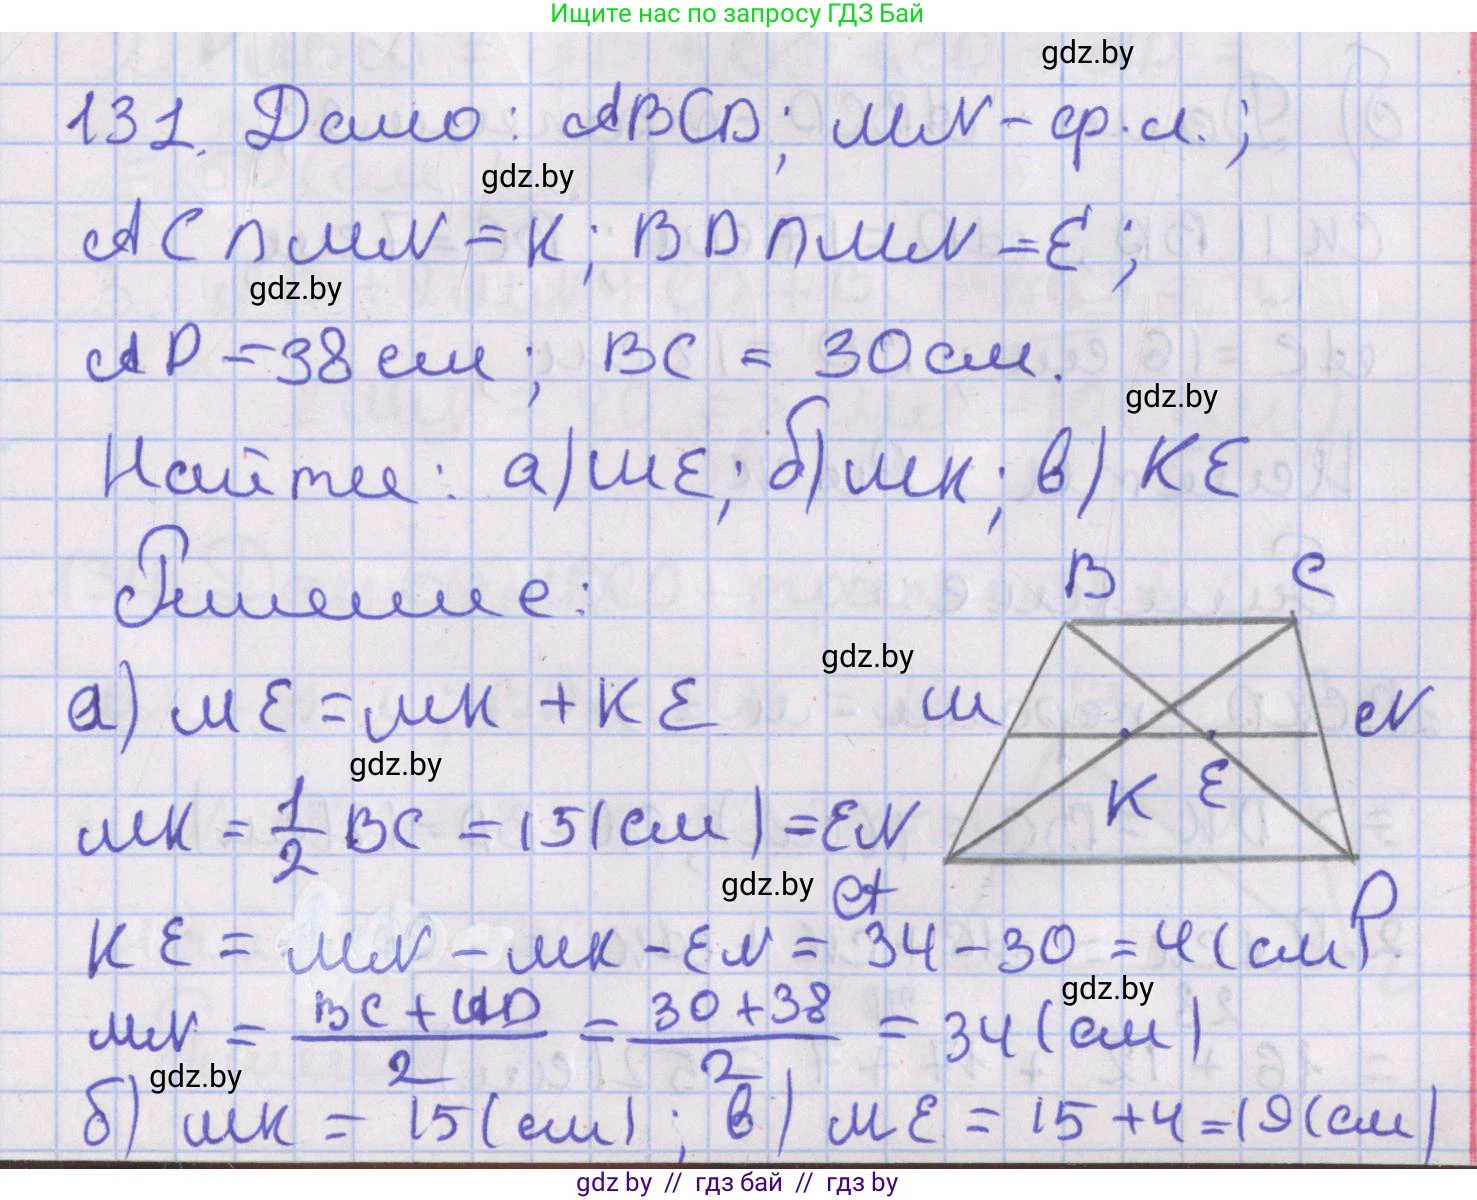 Ищите нас по запросу ГДЗ Бай
gdz.by
131. Дано: ABCD; MN - ср.л.;
gdz.by
AC ∩ MN = K; BD ∩ MN = E;
gdz.by
AD = 38 см; BC = 30 см.
gdz.by
Найти: а) ME; б) MK; в) KE
Решение:
B C
gdz.by
а) ME = MK + KE
M N
gdz.by
K E
MK = 1/2 BC = 15 (см) = EN
gdz.by
A D
KE = MN - MK - EN = 34 - 30 = 4 (см)
gdz.by
MN = (BC + AD)/2 = (30 + 38)/2 = 34 (см)
gdz.by
б) MK = 15 (см); в) ME = 15 + 4 = 19 (см)
gdz.by // гдз бай // гдз by